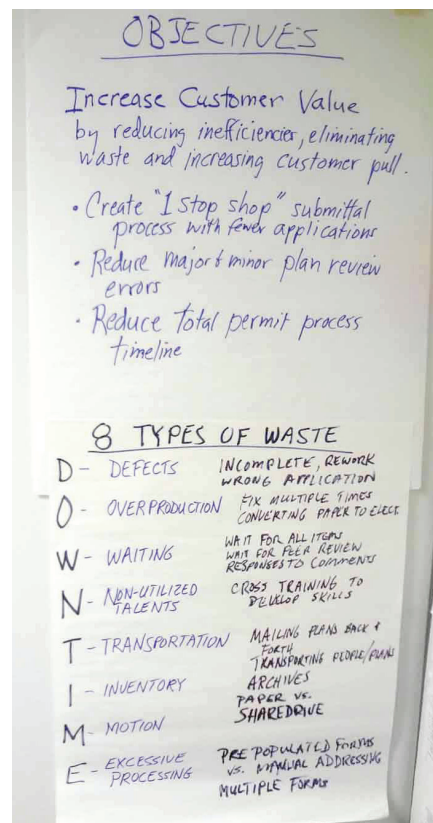 OBJECTIVES
Increase Customer Value
by reducing inefficiencier, eliminating
waste and increasing customer pull.
• Create "1 stop shop" submittal
process with fewer applications
• Reduce major & minor plan review
errors
• Reduce total permit process
timeline
8 TYPES OF WASTE
D - DEFECTS INCOMPLETE, REWORK
WRONG APPLICATION
O - OVERPRODUCTION FIX MULTIPLE TIMES
CONVERTING PAPER TO ELECT.
W - WAITING WAIT FOR ALL ITEMS
WAIT FOR PEER REVIEW
RESPONSES TO COMMENTS
N - NON-UTILIZED TALENTS CROSS TRAINING TO
DEVELOP SKILLS
T - TRANSPORTATION MAILING PLANS BACK &
FORTH
TRANSPORTING PEOPLE/PLANS
I - INVENTORY ARCHIVES
PAPER VS.
SHAREDRIVE
M - MOTION
E - EXCESSIVE PROCESSING PRE POPULATED FORMS
VS. MANUAL ADDRESSING
MULTIPLE FORMS